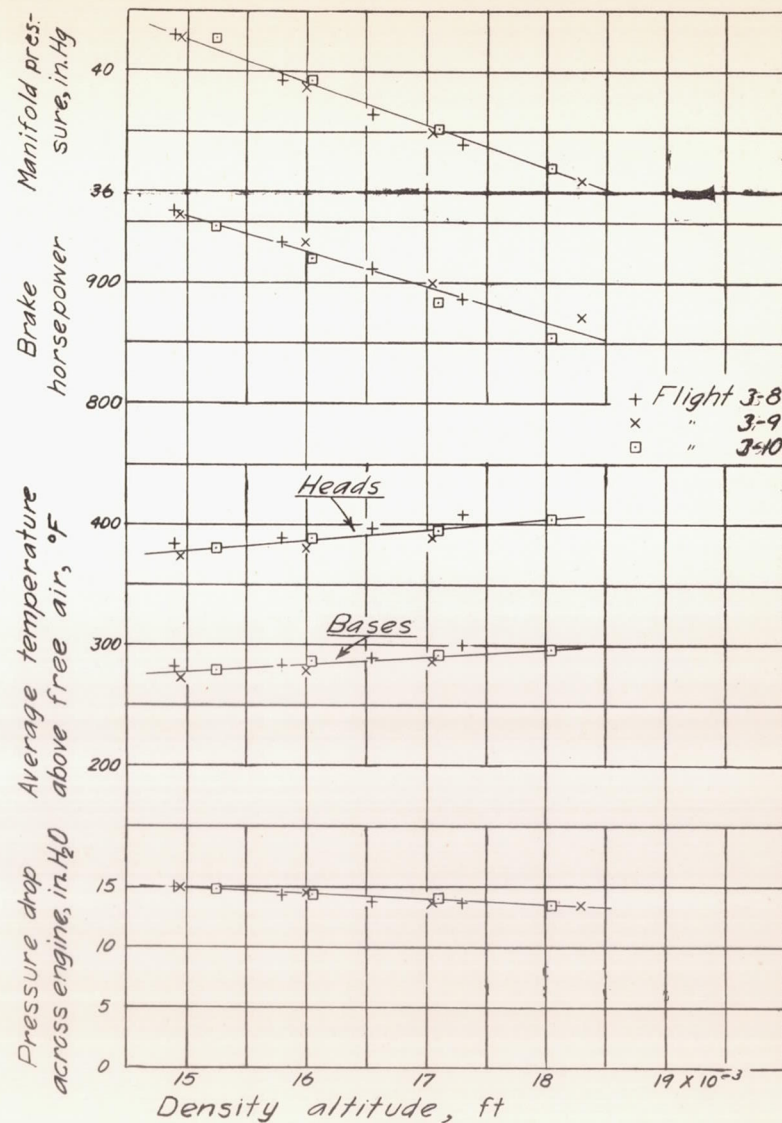 Manifold pres-
sure, in.Hg
40
36
Brake
horsepower
900
800
+ Flight 3-8
× " 3-9
⊡ " 3-10
Average temperature
above free air, °F
400
300
200
Heads
Bases
Pressure drop
across engine, in.H₂O
15
10
5
0
15 16 17 18 19 X 10⁻³
Density altitude, ft